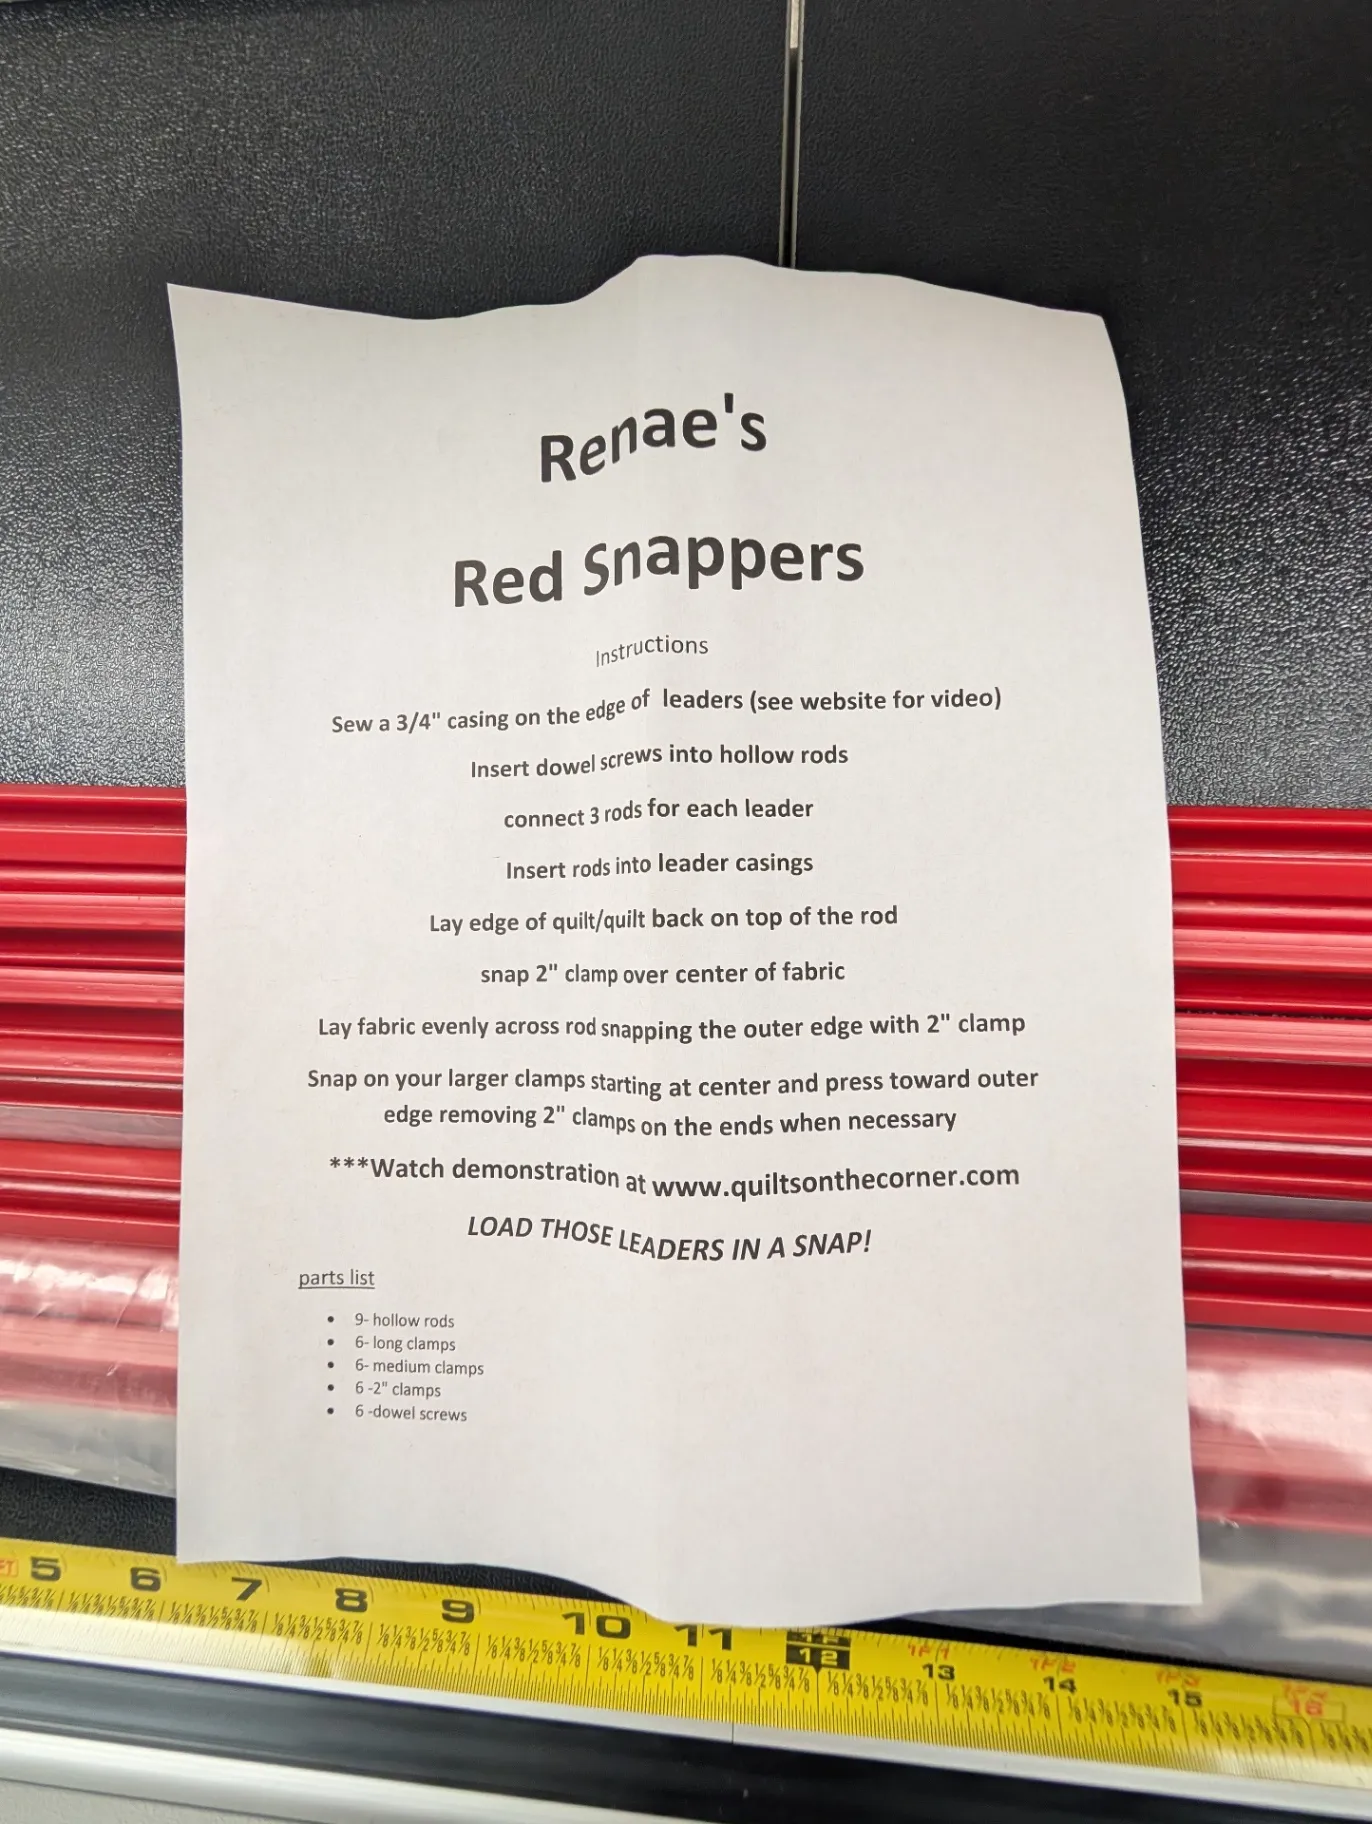 Renae's
Red Snappers
Instructions
Sew a 3/4" casing on the edge of leaders (see website for video)
Insert dowel screws into hollow rods
connect 3 rods for each leader
Insert rods into leader casings
Lay edge of quilt/quilt back on top of the rod
snap 2" clamp over center of fabric
Lay fabric evenly across rod snapping the outer edge with 2" clamp
Snap on your larger clamps starting at center and press toward outer
edge removing 2" clamps on the ends when necessary
***Watch demonstration at www.quiltsonthecorner.com
LOAD THOSE LEADERS IN A SNAP!
parts list
• 9- hollow rods
• 6- long clamps
• 6- medium clamps
• 6 -2" clamps
• 6 -dowel screws
5 6 7 8 9 10 11 12 13 14 15 16